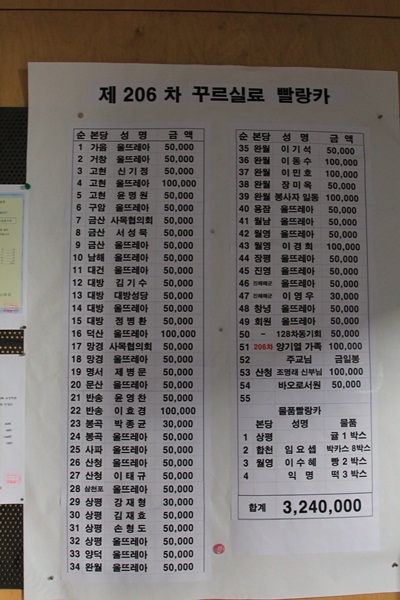 제 206 차 꾸르실료 빨랑카
순 본당 성 명 금 액
1 가음 울뜨레아 50,000
2 거창 울뜨레아 50,000
3 고현 신기정 50,000
4 고현 울뜨레아 100,000
5 고현 윤명원 50,000
6 구암 울뜨레아 50,000
7 금산 사목협의회 50,000
8 금산 서성욱 50,000
9 금산 울뜨레아 50,000
10 남해 울뜨레아 50,000
11 대건 울뜨레아 50,000
12 대방 김기수 50,000
13 대방 대방성당 50,000
14 대방 울뜨레아 50,000
15 대방 정병환 50,000
16 덕산 울뜨레아 100,000
17 망경 사목협의회 50,000
18 망경 울뜨레아 50,000
19 명서 제병문 50,000
20 문산 울뜨레아 50,000
21 반송 윤영찬 50,000
22 반송 이효경 100,000
23 봉곡 박종균 30,000
24 봉곡 울뜨레아 50,000
25 사파 울뜨레아 50,000
26 산청 울뜨레아 50,000
27 산청 이태규 50,000
28 삼천포 울뜨레아 50,000
29 상평 강재형 30,000
30 상평 김재효 50,000
31 상평 손형도 50,000
32 상평 울뜨레아 50,000
33 양덕 울뜨레아 50,000
34 완월 울뜨레아 50,000
35 완월 이기석 50,000
36 완월 이동수 100,000
37 완월 이민호 100,000
38 완월 장미옥 50,000
39 완월 봉사자 일동 100,000
40 용잠 울뜨레아 50,000
41 월남 울뜨레아 50,000
42 월영 울뜨레아 50,000
43 월영 이경희 100,000
44 장평 울뜨레아 50,000
45 진영 울뜨레아 50,000
46 울뜨레아 50,000
47 이영우 30,000
48 창녕 울뜨레아 50,000
49 회원 울뜨레아 50,000
50 – 128차동기회 50,000
51 206차 양기열 가족 100,000
52 주교님 금일봉
53 산청 조명래 신부님 100,000
54 바오로서원 50,000
55
물품빨랑카
본당 성명 물품
1 상평 귤 1 박스
2 합천 임요셉 박카스 8박스
3 월영 이수혜 빵 2 박스
4 익 명 떡 3 박스
합계 3,240,000